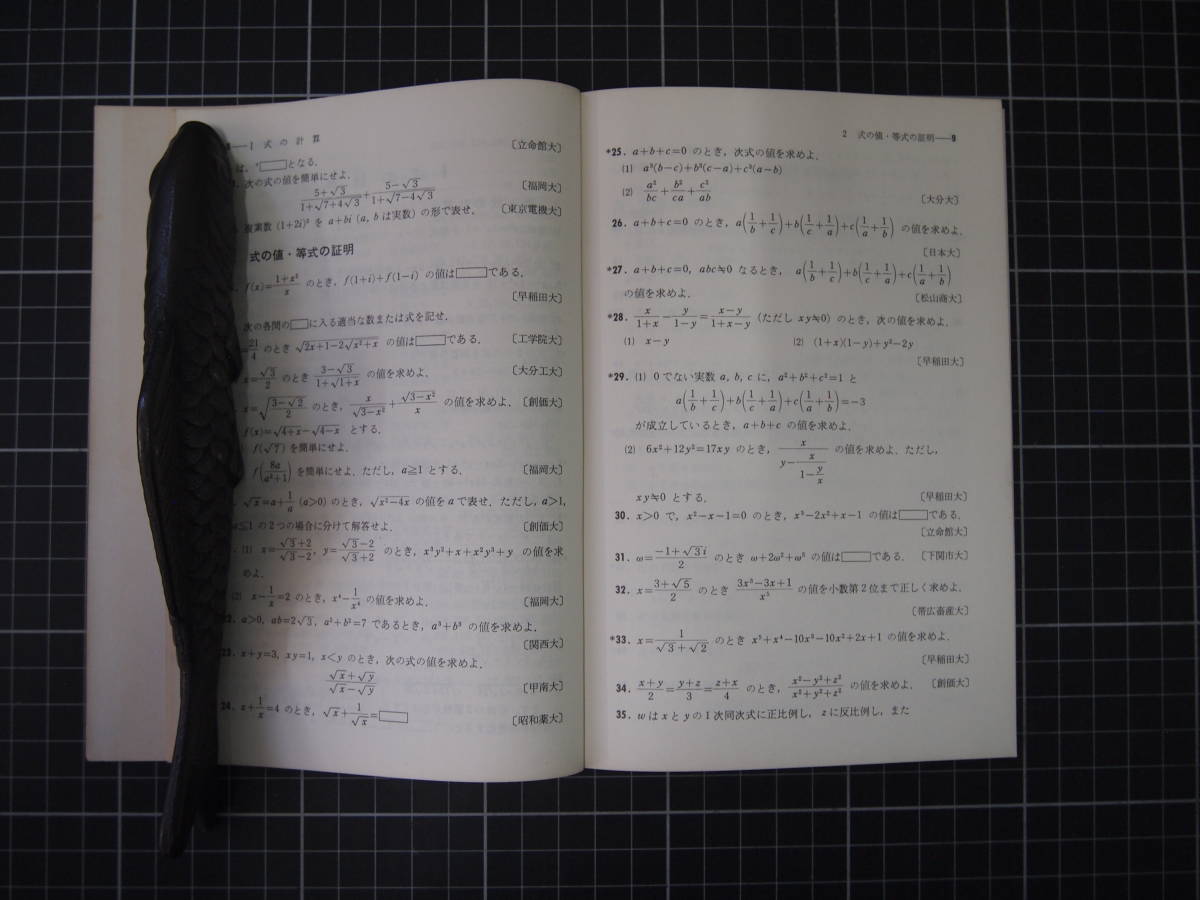 1 式の計算
〔立命館大〕
は，□となる．
次の式の値を簡単にせよ．
(5+√3)/(1+√(7+4√3))+(5−√3)/(1+√(7−4√3)) 〔福岡大〕
複素数 (1+2i)³ を a+bi (a, b は実数) の形で表せ． 〔東京電機大〕
式の値・等式の証明
f(x)= のとき，f(1+i)+f(1−i) の値は□である．
〔早稲田大〕
次の各問の□に入る適当な数または式を記せ．
21/4 のとき √(2x+1−2√(x²+x)) の値は□である． 〔工学院大〕
x=√3/2 のとき (3−√3)/(1+√(1+x)) の値を求めよ． 〔大分工大〕
x=√((3−√2)/2) のとき，x/√(3−x²)+√(3−x²)/x の値を求めよ．〔創価大〕
f(x)=√(4+x)−√(4−x) とする．
f(√7) を簡単にせよ．
f(8a/(a²+1)) を簡単にせよ．ただし，a≧1 とする． 〔福岡大〕
√x=a+1/a (a>0) のとき，√(x²−4x) の値を a で表せ．ただし，a>1，
a≦1 の2つの場合に分けて解答せよ． 〔創価大〕
(1) x=(√3+2)/(√3−2)，y=(√3−2)/(√3+2) のとき，x³y²+x+x²y³+y の値を求
めよ．
(2) x−1/x=2 のとき，x⁴−1/x⁴ の値を求めよ． 〔福岡大〕
22．a>0, ab=2√3, a²+b²=7 であるとき，a³+b³ の値を求めよ．
〔関西大〕
23．x+y=3, xy=1, x<y のとき，次の式の値を求めよ．
(√x+√y)/(√x−√y) 〔甲南大〕
24．x+1/x=4 のとき，√x+1/√x=□ 〔昭和薬大〕
2 式の値・等式の証明——9
*25．a+b+c=0 のとき，次式の値を求めよ．
(1) a³(b−c)+b³(c−a)+c³(a−b)
(2) a²/bc+b²/ca+c²/ab 〔大分大〕
26．a+b+c=0 のとき，a(1/b+1/c)+b(1/c+1/a)+c(1/a+1/b) の値を求めよ．
〔日本大〕
*27．a+b+c=0, abc≒0 なるとき，a(1/b+1/c)+b(1/c+1/a)+c(1/a+1/b)
の値を求めよ． 〔松山商大〕
*28．x/(1+x)−y/(1−y)=(x−y)/(1+x−y) (ただし xy≒0) のとき，次の値を求めよ．
(1) x−y (2) (1+x)(1−y)+y²−2y
〔早稲田大〕
*29．(1) 0でない実数 a, b, c に，a²+b²+c²=1 と
a(1/b+1/c)+b(1/c+1/a)+c(1/a+1/b)=−3
が成立しているとき，a+b+c の値を求めよ．
(2) 6x²+12y²=17xy のとき，x/(y−x/(1−y/x)) の値を求めよ．ただし，
xy≒0 とする． 〔早稲田大〕
30．x>0 で，x²−x−1=0 のとき，x³−2x²+x−1 の値は□である．
〔立命館大〕
31．ω=(−1+√3i)/2 のとき ω+2ω²+ω⁵ の値は□である． 〔下関市大〕
32．x=(3+√5)/2 のとき (3x³−3x+1)/x⁵ の値を小数第2位まで正しく求めよ．
〔帯広畜産大〕
*33．x=1/(√3+√2) のとき x⁵+x⁴−10x³−10x²+2x+1 の値を求めよ．
〔早稲田大〕
34．(x+y)/2=(y+z)/3=(z+x)/4 のとき，(x²−y²+z²)/(x²+y²+z²) の値を求めよ． 〔創価大〕
35．w は x と y の1次同次式に正比例し，z に反比例し，また